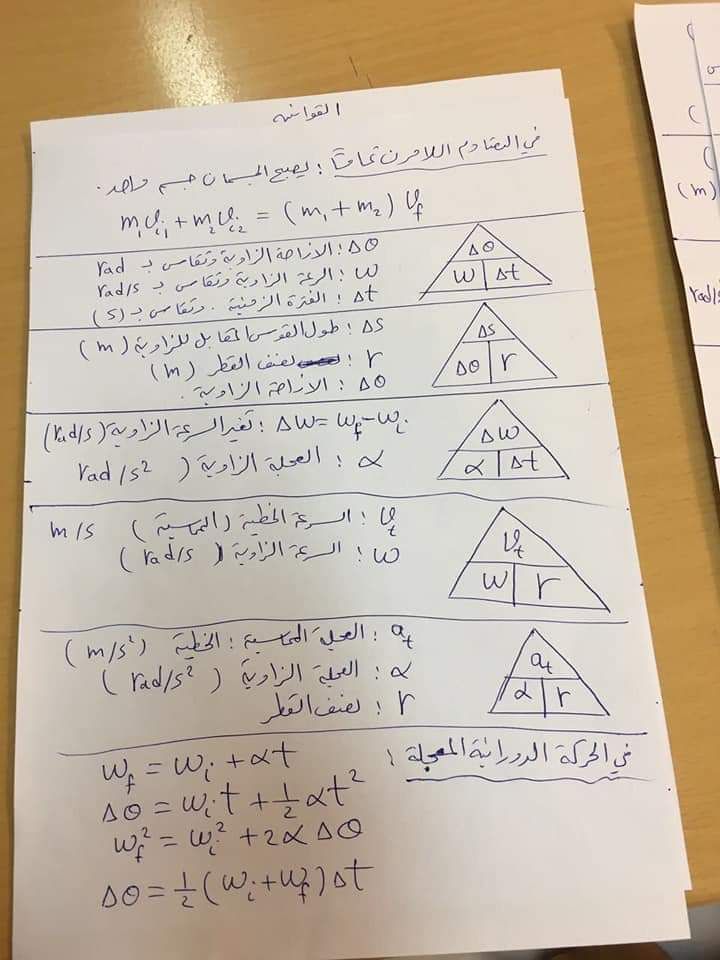 القوانين
في التصادم اللامرن تمامًا : يصبح الجسمان جسم واحد .
m₁v_i₁ + m₂v_i₂ = (m₁ + m₂) v_f
Δθ
w Δt
Δθ : الازاحة الزاوية وتقاس بـ rad
w : السرعة الزاوية وتقاس بـ rad/s
Δt : الفترة الزمنية . وتقاس بـ (s)
Δs
Δθ r
Δs : طول القوس المقابل للزاوية (m)
r : نصف القطر (m)
Δθ : الازاحة الزاوية .
Δw
α Δt
Δw = w_f - w_i : تغير السرعة الزاوية (rad/s)
α : العجلة الزاوية ( rad/s²
v_t
w r
v_t : السرعة الخطية (المماسية) m/s
w : السرعة الزاوية (rad/s)
a_t
α r
a_t : العجلة المماسية : الخطية (m/s²)
α : العجلة الزاوية (rad/s²)
r : نصف القطر
في الحركة الدورانية المعجلة :
w_f = w_i + αt
Δθ = w_i t + ½ αt²
w_f² = w_i² + 2α Δθ
Δθ = ½ (w_i + w_f) Δt
(m)
rad/s